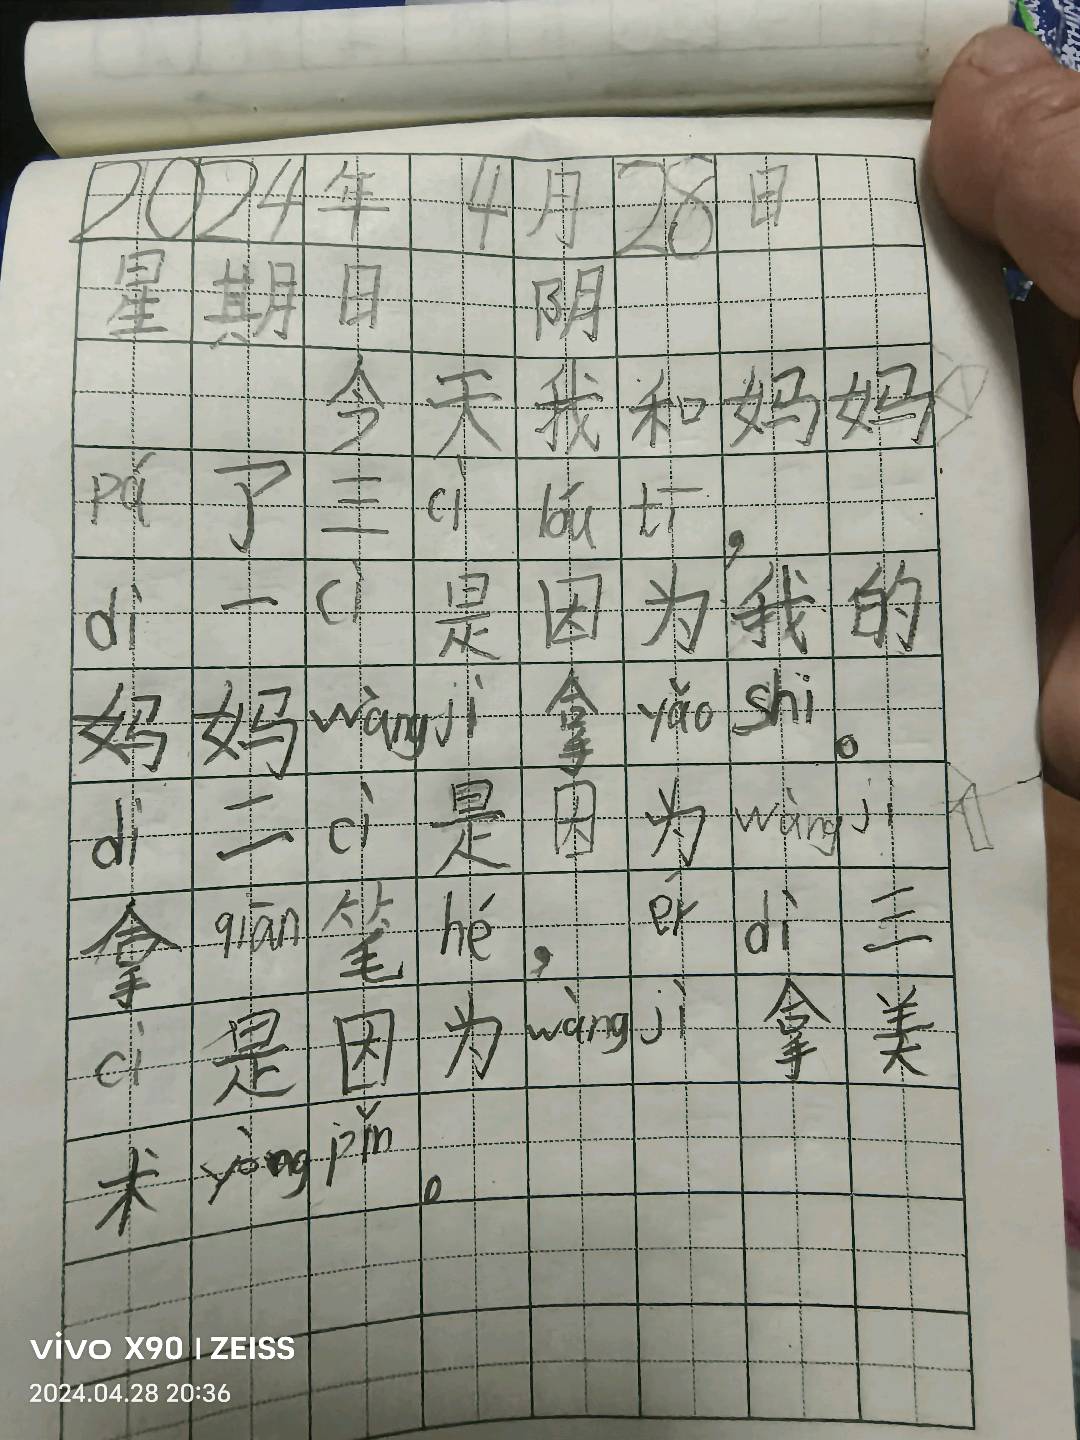 2024年 4月28日
星期日 阴
今天我和妈妈
pá了三cì lóu tī，
dì一cì是因为我的
妈妈wàng jì拿yǎo shi。
dì二cì是因为wàng jì
拿qiān笔hé，ér dì三
cì是因为wàng jì拿美
术yòng pǐn。
vivo X90 | ZEISS
2024.04.28 20:36